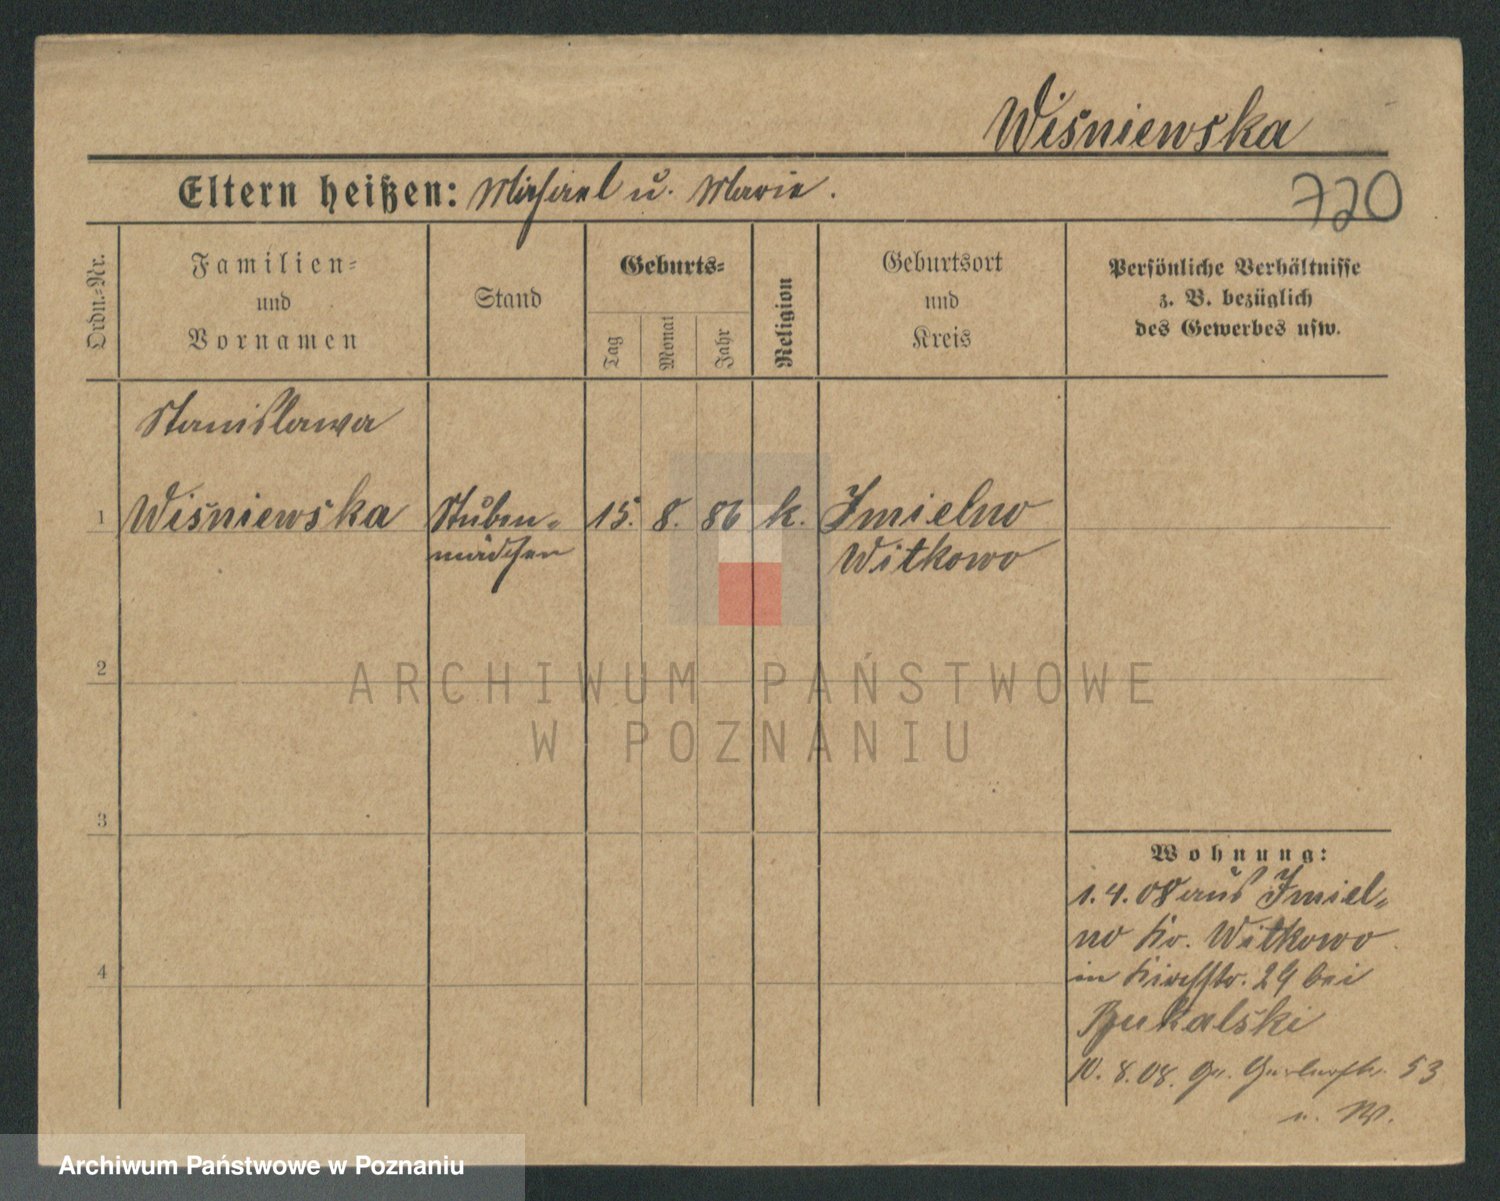 Wiśniewska
Eltern heißen: Michael u. Marie.
720
Ordn.-Nr.
Familien-
und
Vornamen
Stand
Geburts-
Tag
Monat
Jahr
Religion
Geburtsort
und
Kreis
Persönliche Verhältnisse
z. B. bezüglich
des Gewerbes usw.
Stanislawa
1 Wiśniewska Stuben- 15. 8. 86 k. Imielno
mädchen Witkowo
2
ARCHIWUM PAŃSTWOWE
W POZNANIU
3
Wohnung:
1.4.08 aus Imiel-
no Kr. Witkowo
4
in Kirchstr. 29 bei
10.8.08. Gr. 53
Archiwum Państwowe w Poznaniu